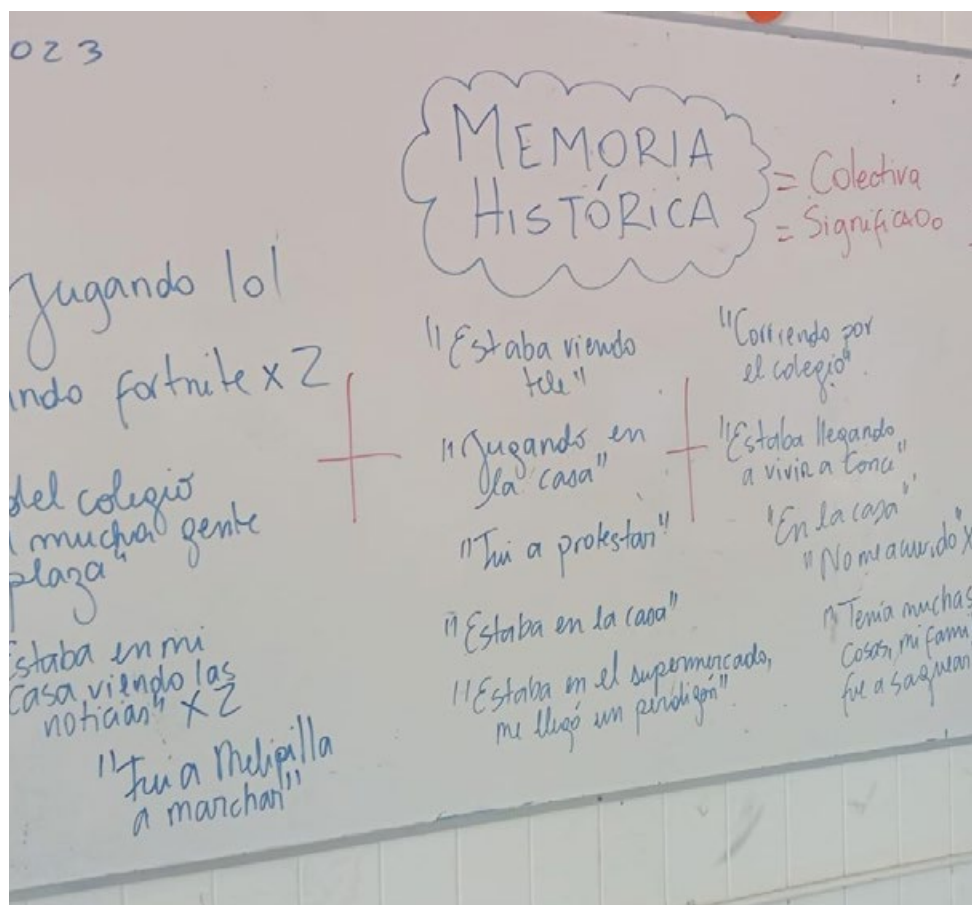 023
MEMORIA
HISTÓRICA
= Colectiva
= Significado
Jugando lol
ndo fortnite x 2
del colegio
mucha gente
plaza"
staba en mi
casa viendo las
noticias" x 2
"Fui a Melipilla
a marchar"
"Estaba viendo
tele"
"Jugando en
la casa"
"Fui a protestar"
"Estaba en la casa"
"Estaba en el supermercado,
me llegó un perdigón"
"Corriendo por
el colegio"
"Estaba llegando
a vivir a Conce"
"En la casa"
"No me acuerdo" x
"Tenía muchas
cosas, mi fami
fue a saquear